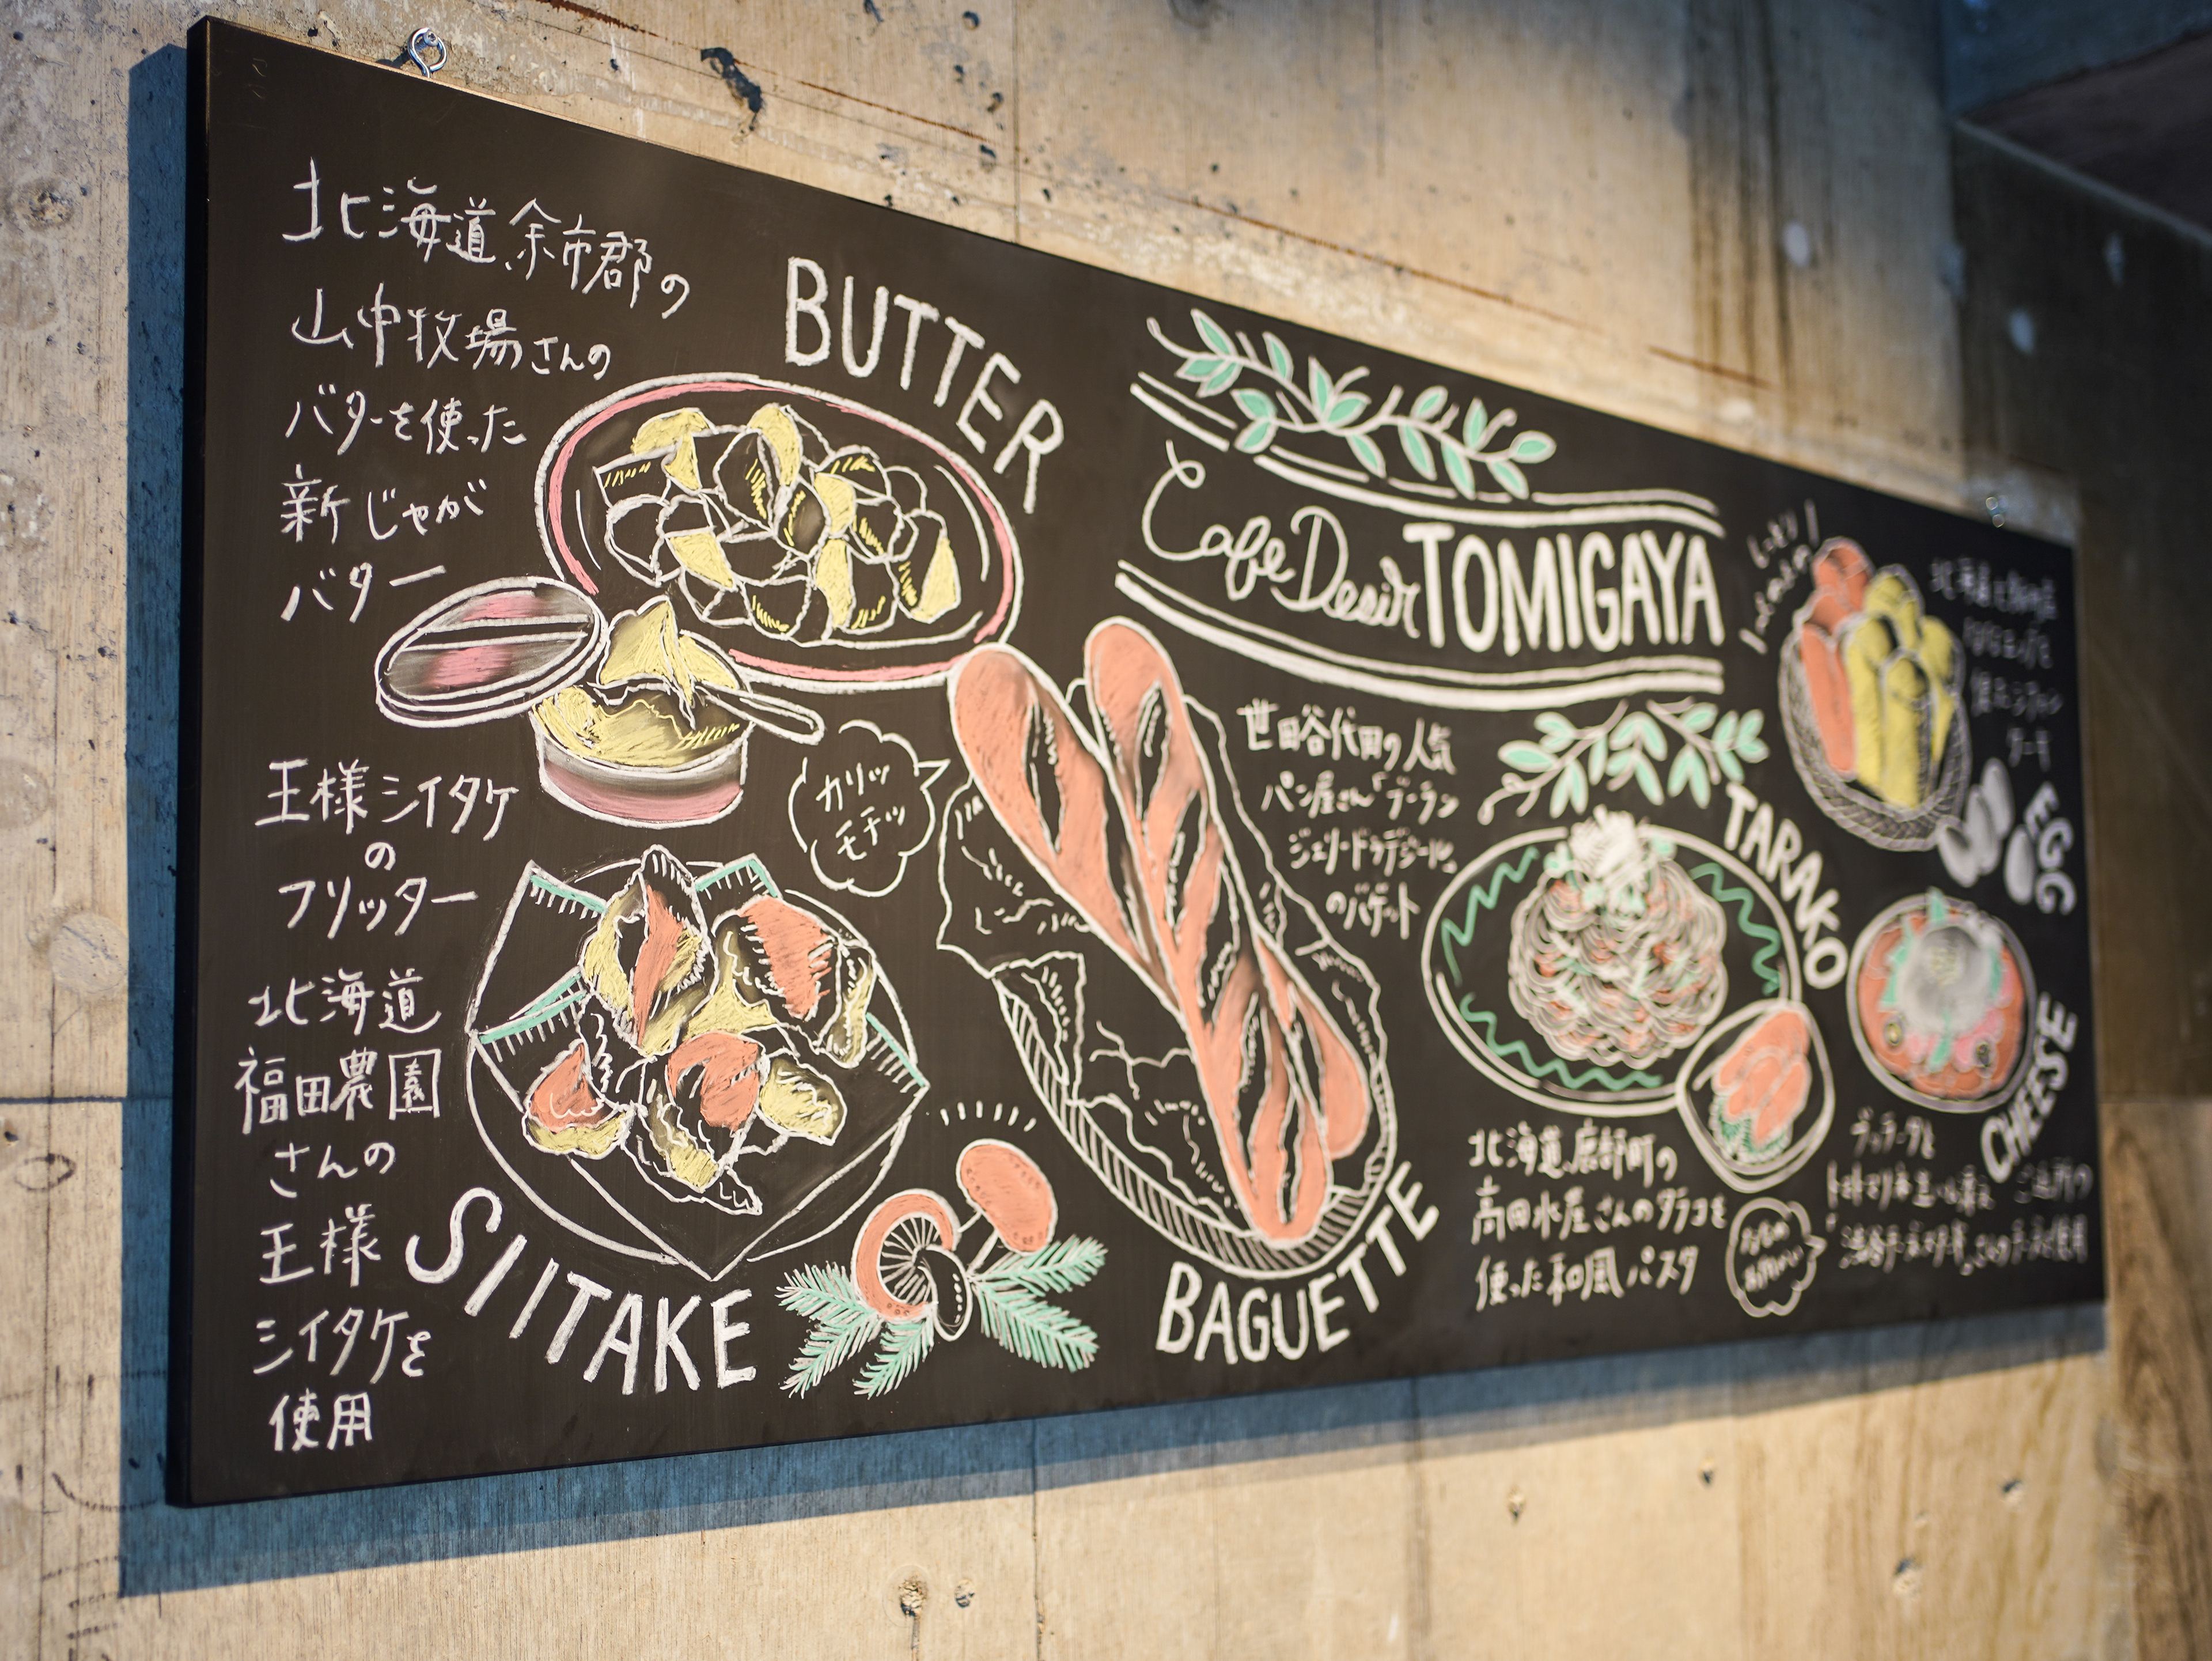 北海道余市郡の
山中牧場さんの
バターを使った
新じゃが
バター
BUTTER
王様シイタケ
の
フリッター
北海道
福田農園
さんの
王様
シイタケを
使用
SIITAKE
カリッ
モチッ
BAGUETTE
Cafe Desir TOMIGAYA
世田谷代田の人気
パン屋さん「ブーラン
ジェリードゥデジール」
のバゲット
TARAKO
北海道鹿部町の
高田水屋さんのタラコを
使った和風パスタ
EGG
CHEESE
ブッラータと